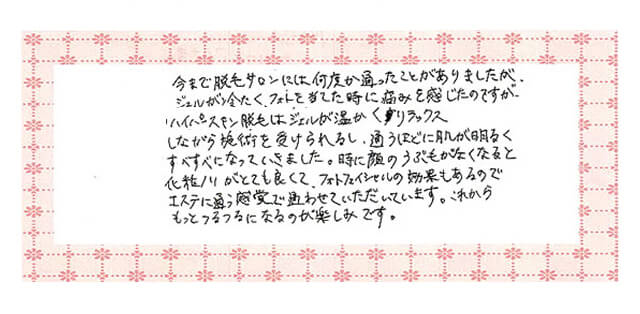 今まで脱毛サロンには何度か通ったことがありましたが、
ジェルが冷たく、フォトを当てた時に痛みを感じたのですが、
ハイパースキン脱毛はジェルが温かくリラックス
しながら施術を受けられるし、通うほどに肌が明るく
すべすべになっていきました。特に顔のうぶ毛がなくなると
化粧ノリがとても良くて、フォトフェイシャルの効果もあるので
エステに通う感覚で通わせていただいています。これから
もっとつるつるになるのが楽しみです。